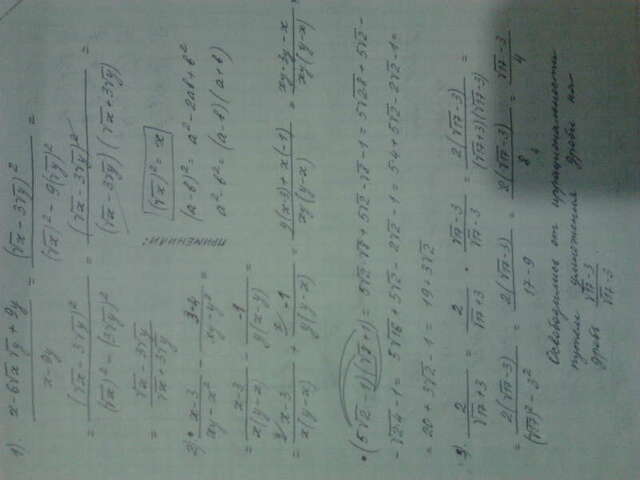 1). (x - 6√x√y + 9y)/(x - 9y) = (√x - 3√y)²/((√x)² - 9(√y)²) =
= (√x - 3√y)²/((√x)² - (3√y)²) = (√x - 3√y)²/((√x - 3√y)(√x + 3√y)) =
= (√x - 3√y)/(√x + 3√y)
применили: (√x)² = x
(a-b)² = a² - 2ab + b²
a² - b² = (a-b)(a+b)
2). (x-3)/(xy - x²) - (3-1)/(xy - y²) =
= (x-3)/(x(y-x)) - (-1)/(y(x-y)) =
= (x-3)/(x(y-x)) + (-1)/(y(y-x)) = (y(x-3)+x(-1))/(xy(y-x)) = (xy-3y-x)/(xy(y-x))
• (5√2 - 1)(√8 + 1) = 5√2·√8 + 5√2 - √8 - 1 = 5√2·8 + 5√2 -
- √2·4 - 1 = 5√16 + 5√2 - 2√2 - 1 = 5·4 + 5√2 - 2√2 - 1 =
= 20 + 3√2 - 1 = 19 + 3√2
3). 2/(√17+3) = 2/(√17+3) • (√17-3)/(√17-3) = 2(√17-3)/((√17+3)(√17-3)) =
= 2(√17-3)/((√17)² - 3²) = 2(√17-3)/(17-9) = 2(√17-3)/8 = (√17-3)/4
Освободились от иррациональности
путем умножения дроби на
дробь (√17-3)/(√17-3).